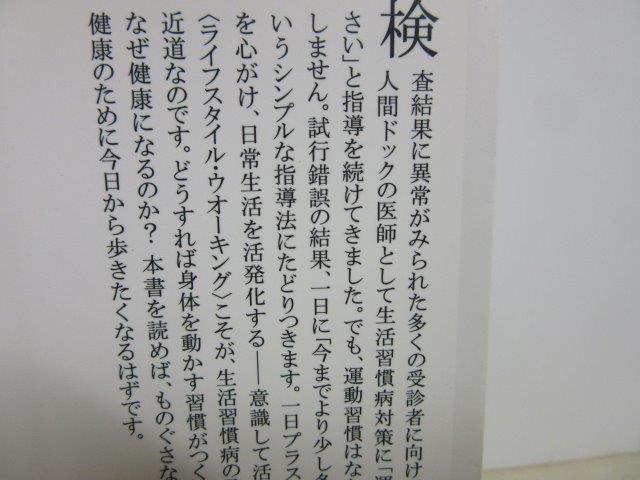 検査結果に異常がみられた多くの受診者に向け
人間ドックの医師として生活習慣病対策に「運
さい」と指導を続けてきました。でも、運動習慣はな
しません。試行錯誤の結果、一日に「今までより少し多
いうシンプルな指導法にたどりつきます。一日プラス
を心がけ、日常生活を活発化する――意識して活
〈ライフスタイル・ウオーキング〉こそが、生活習慣病の
近道なのです。どうすれば身体を動かす習慣がつく
なぜ健康になるのか? 本書を読めば、ものぐさな
健康のために今日から歩きたくなるはずです。